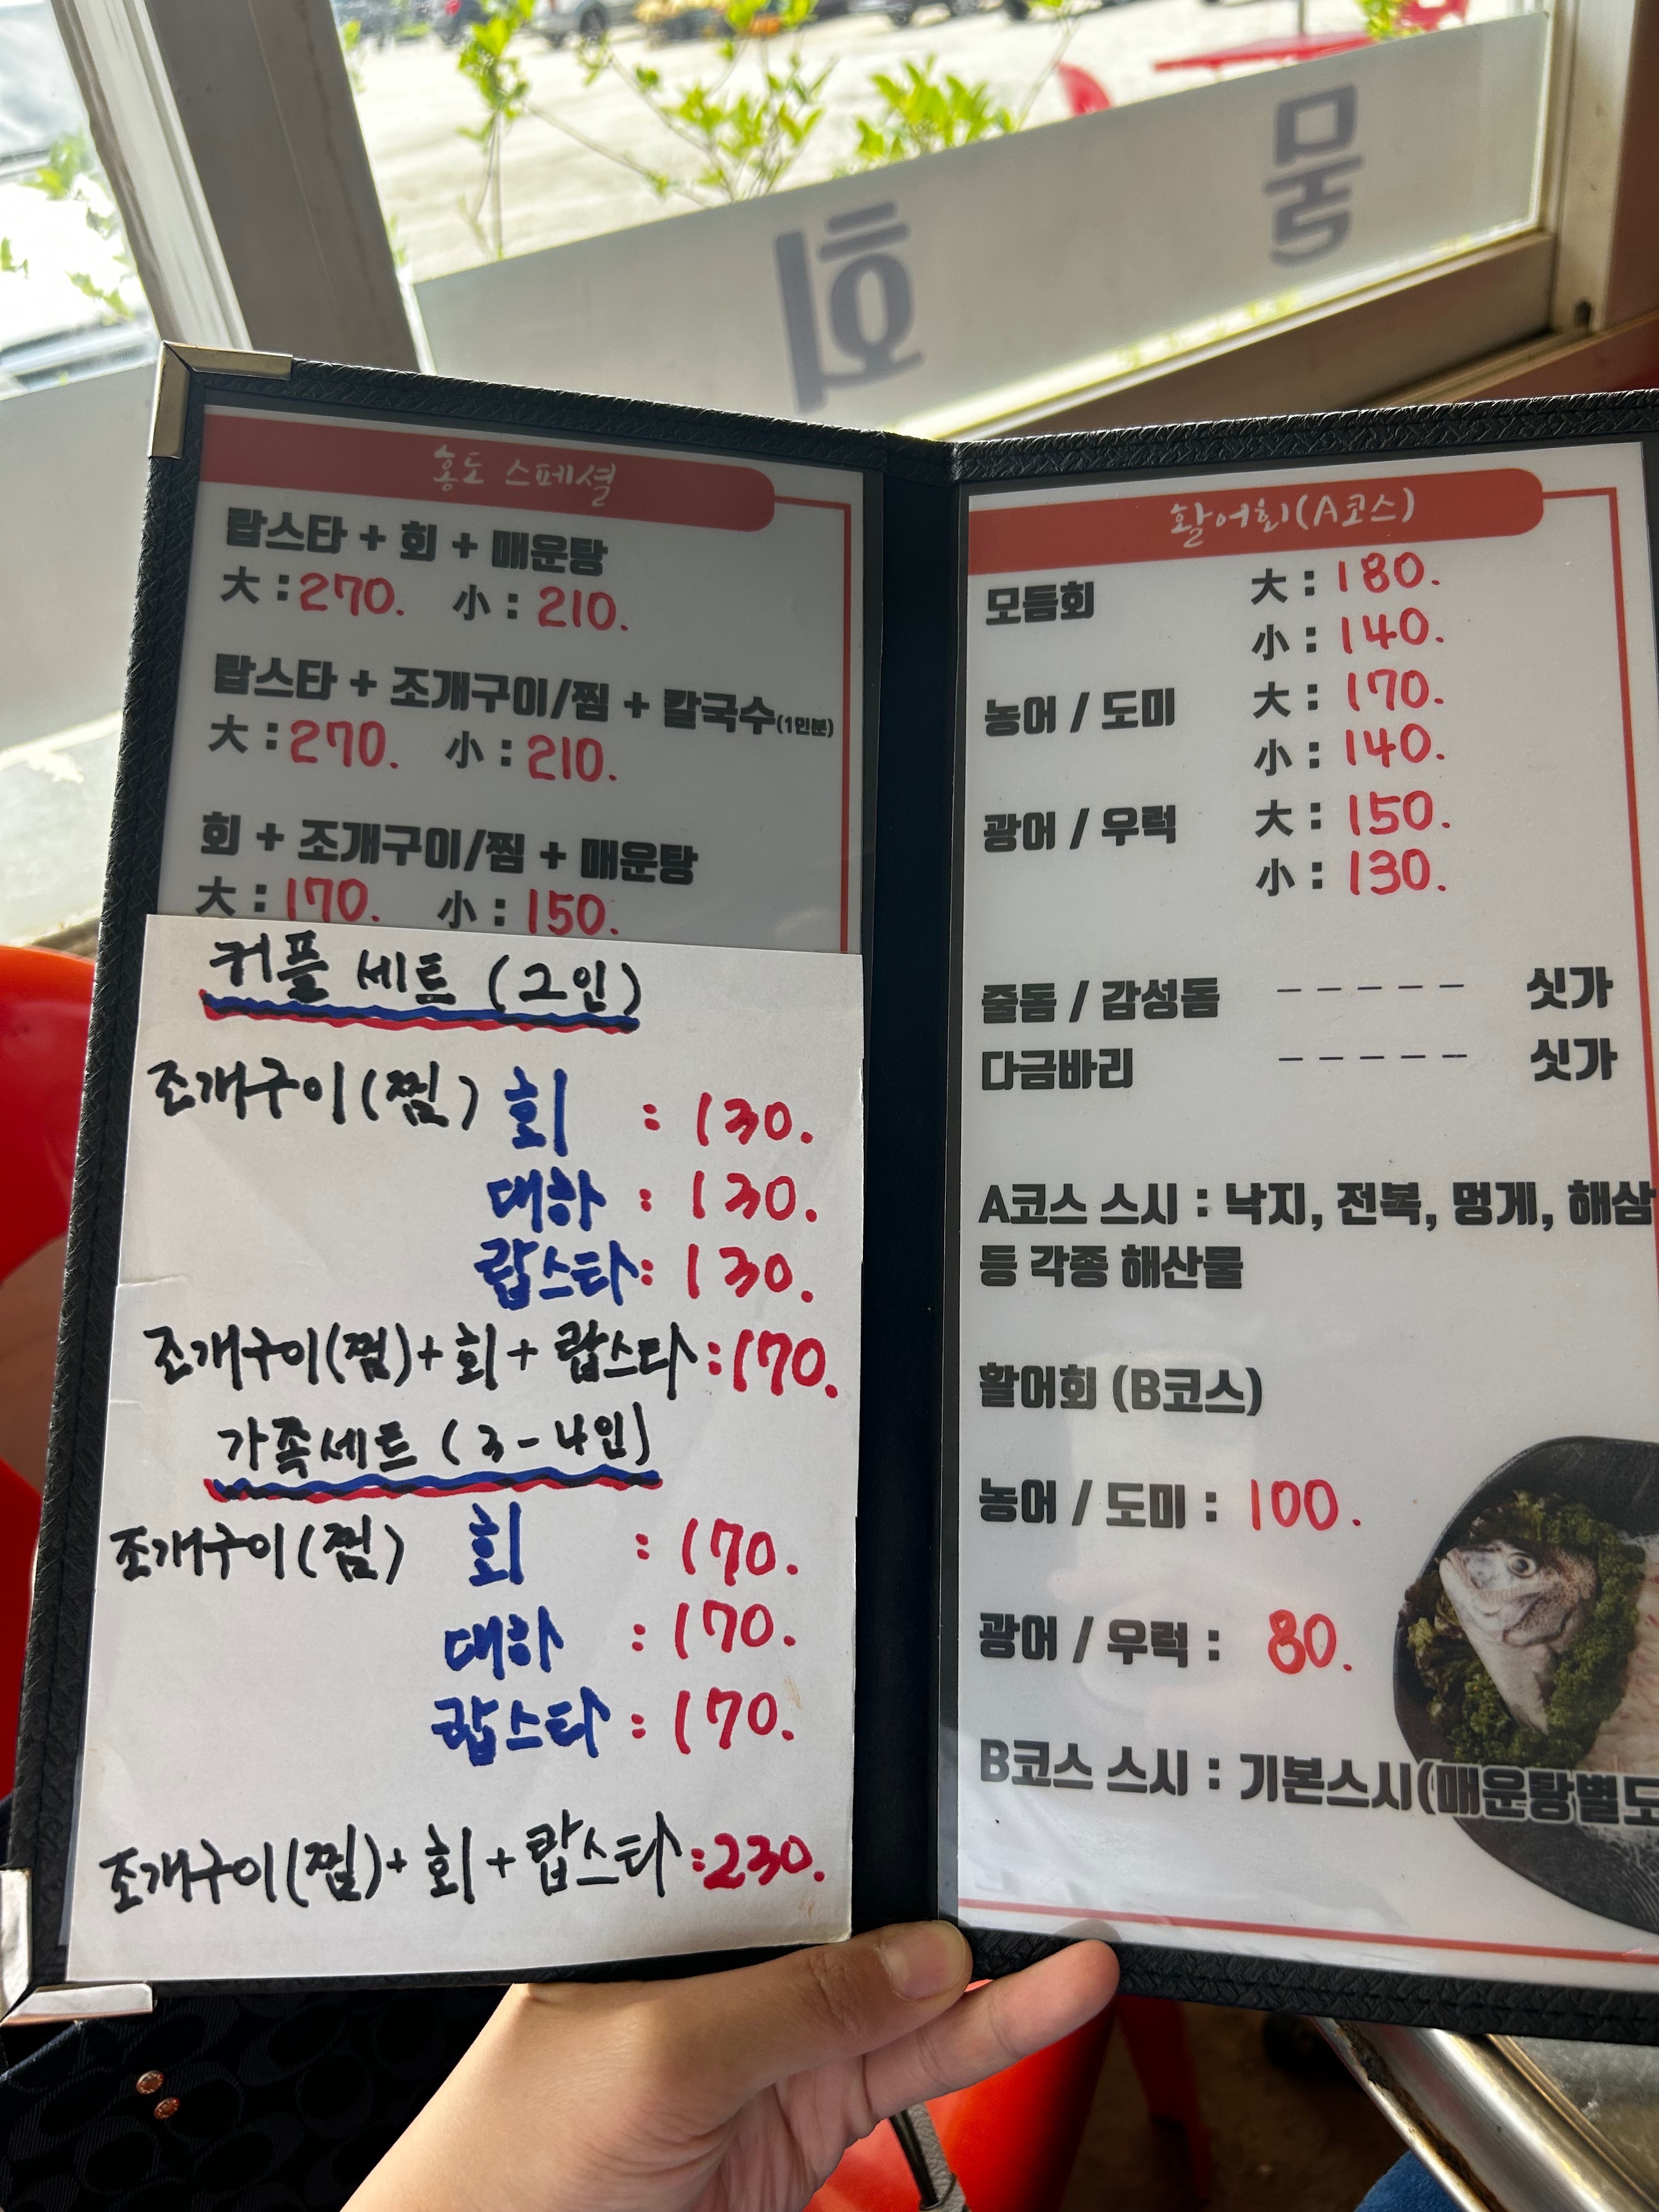 물
회
홍도 스페셜
랍스타 + 회 + 매운탕
大 : 270. 小 : 210.
랍스타 + 조개구이/찜 + 칼국수(1인분)
大 : 270. 小 : 210.
회 + 조개구이/찜 + 매운탕
大 : 170. 小 : 150.
커플 세트 (2인)
조개구이(찜) 회 : 130.
대하 : 130.
랍스타 : 130.
조개구이(찜) + 회 + 랍스타 : 170.
가족세트 (3-4인)
조개구이(찜) 회 : 170.
대하 : 170.
랍스타 : 170.
조개구이(찜) + 회 + 랍스타 : 230.
활어회(A코스)
모듬회 大 : 180.
小 : 140.
농어 / 도미 大 : 170.
小 : 140.
광어 / 우럭 大 : 150.
小 : 130.
줄돔 / 감성돔 ----- 싯가
다금바리 ----- 싯가
A코스 스시 : 낙지, 전복, 멍게, 해삼
등 각종 해산물
활어회 (B코스)
농어 / 도미 : 100.
광어 / 우럭 : 80.
B코스 스시 : 기본스시(매운탕별도